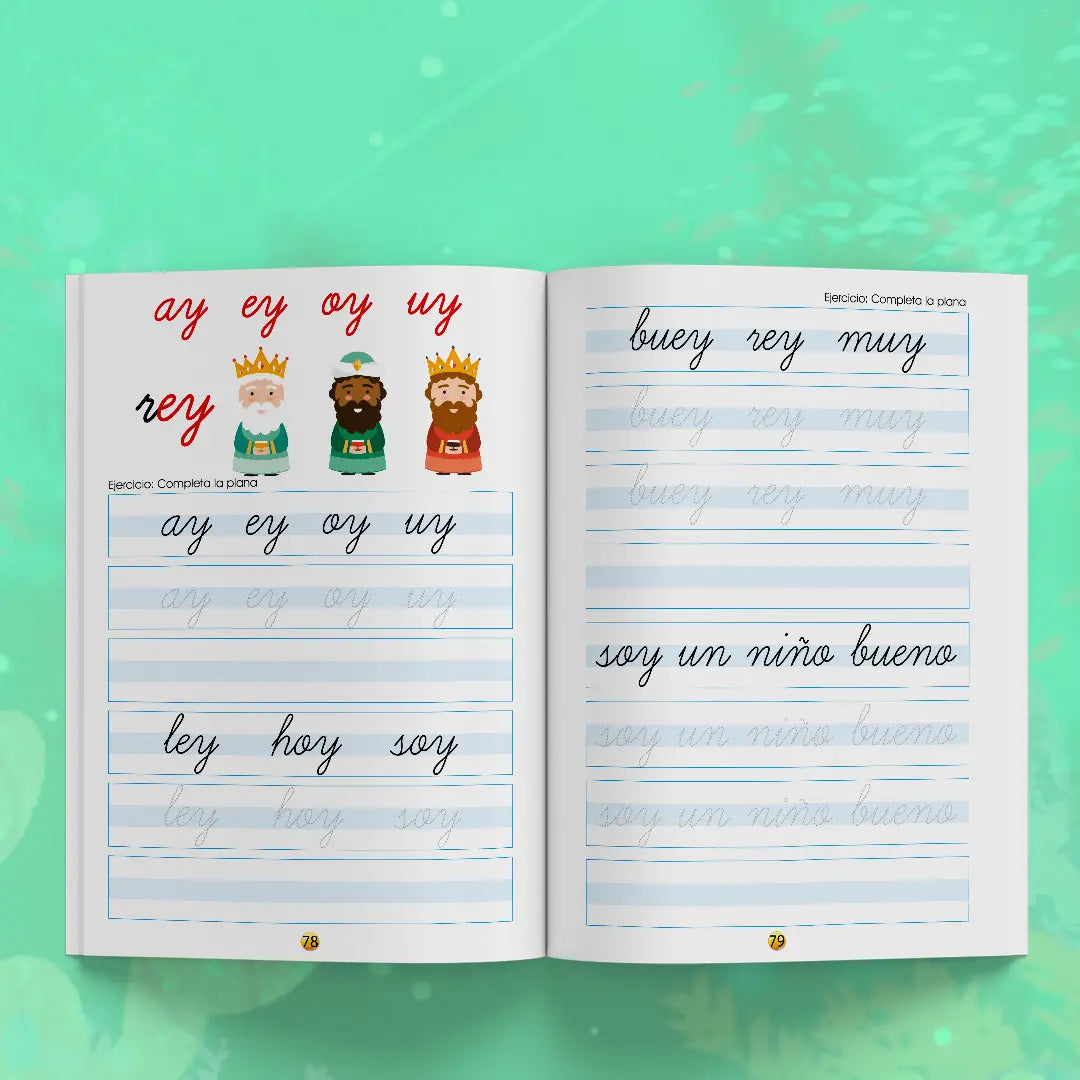 ay ey oy uy
rey
Ejercicio: Completa la plana
ay ey oy uy
ay ey oy uy
ley hoy soy
ley hoy soy
78
Ejercicio: Completa la plana
buey rey muy
buey rey muy
buey rey muy
soy un niño bueno
soy un niño bueno
soy un niño bueno
79